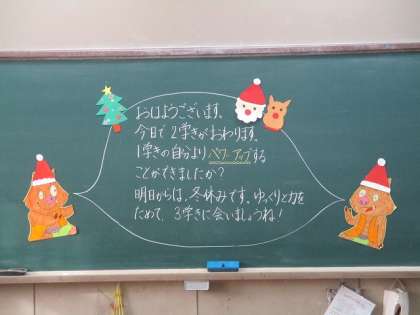 おはようございます。
今日で2学きがおわります。
1学きの自分よりパワーアップする
ことができましたか？
明日からは、冬休みです。ゆっくりと力を
ためて、3学きに会いましょうね！